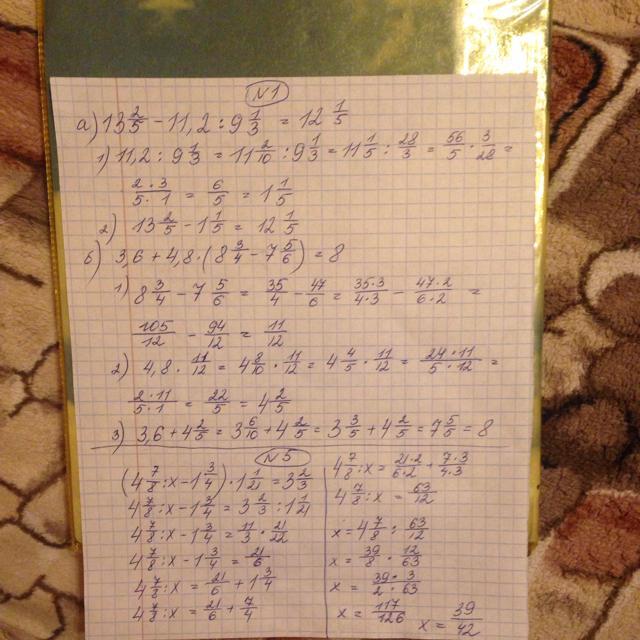 N1
а) 13 2/5 - 11,2 : 9 1/3 = 12 1/5
1) 11,2 : 9 1/3 = 11 2/10 : 9 1/3 = 11 1/5 : 28/3 = 56/5 · 3/28 =
2·3/5·1 = 6/5 = 1 1/5
2) 13 2/5 - 1 1/5 = 12 1/5
б) 3,6 + 4,8 · (8 3/4 - 7 5/6) = 8
1) 8 3/4 - 7 5/6 = 35/4 - 47/6 = 35·3/4·3 - 47·2/6·2 =
105/12 - 94/12 = 11/12
2) 4,8 · 11/12 = 4 8/10 · 11/12 = 4 4/5 · 11/12 = 24·11/5·12 =
2·11/5·1 = 22/5 = 4 2/5
3) 3,6 + 4 2/5 = 3 6/10 + 4 2/5 = 3 3/5 + 4 2/5 = 7 5/5 = 8
N5
(4 7/8 : x - 1 3/4) · 1 1/21 = 3 2/3
4 7/8 : x - 1 3/4 = 3 2/3 : 1 1/21
4 7/8 : x - 1 3/4 = 11/3 · 21/22
4 7/8 : x - 1 3/4 = 21/6
4 7/8 : x = 21/6 + 1 3/4
4 7/8 : x = 21/6 + 7/4
4 7/8 : x = 21·2/6·2 + 7·3/4·3
4 7/8 : x = 63/12
x = 4 7/8 : 63/12
x = 39/8 · 12/63
x = 39·3/2·63
x = 117/126 x = 39/42